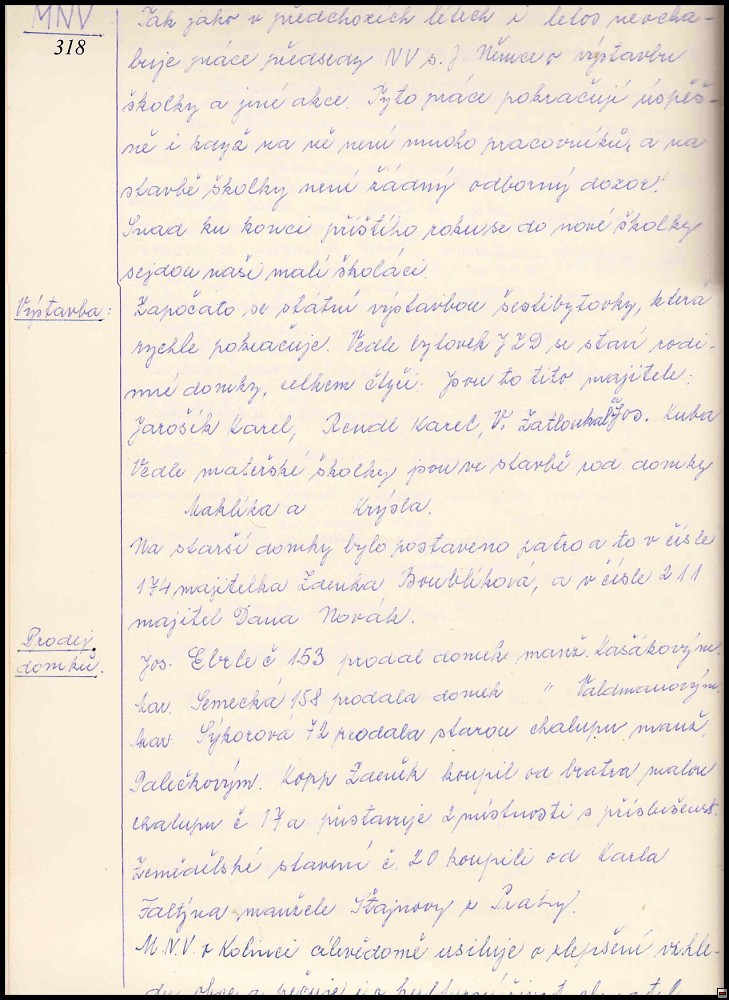 MNV
318
Tak jako v předchozích létech i letos neocha-
buje práce předsedy NV s. J. Němce o výstavbu
školky a jiné akce. Tyto práce pokračují úspěš-
ně i když na ně není mnoho pracovníků, a na
stavbě školky není žádný odborný dozor.
Snad ku konci příštího roku se do nové školky
sejdou naši malí školáci.
Výstavba:
Započato se státní výstavbou šestibytovky, která
rychle pokračuje. Vedle bytovek JZD se staví rodi-
nné domky, celkem čtyři. Jsou to tito majitelé:
Jarošík Karel, Rendl Karel, V. Zatloukal Jos. Kuba
Vedle mateřské školky jsou ve stavbě rod. domky
Maklíka a Krýsla.
Na starší domky bylo postaveno patro a to v čísle
174 majitelka Zdenka Boublíková, a v čísle 211
majitel Dana Novák.
Prodej
domků.
Jos. Eberle č 153 prodal domek manž. Kasákovým.
Mar. Semecká 158 prodala domek " Valdmanovým
Mar. Sýkorová 72 prodala starou chalupu manž.
Palečkovým. Kopp Zdeněk koupil od bratra malou
chalupu č 17 a přistavuje 2 místnosti s příslušenst.
Zemědělské stavení č. 20 koupili od Karla
Faltýna manželé Štajnovy z Prahy.
M.N.V. v Kolinci cílevědomě usiluje o zlepšení vzhle-
du obce a pečuje i o kulturní